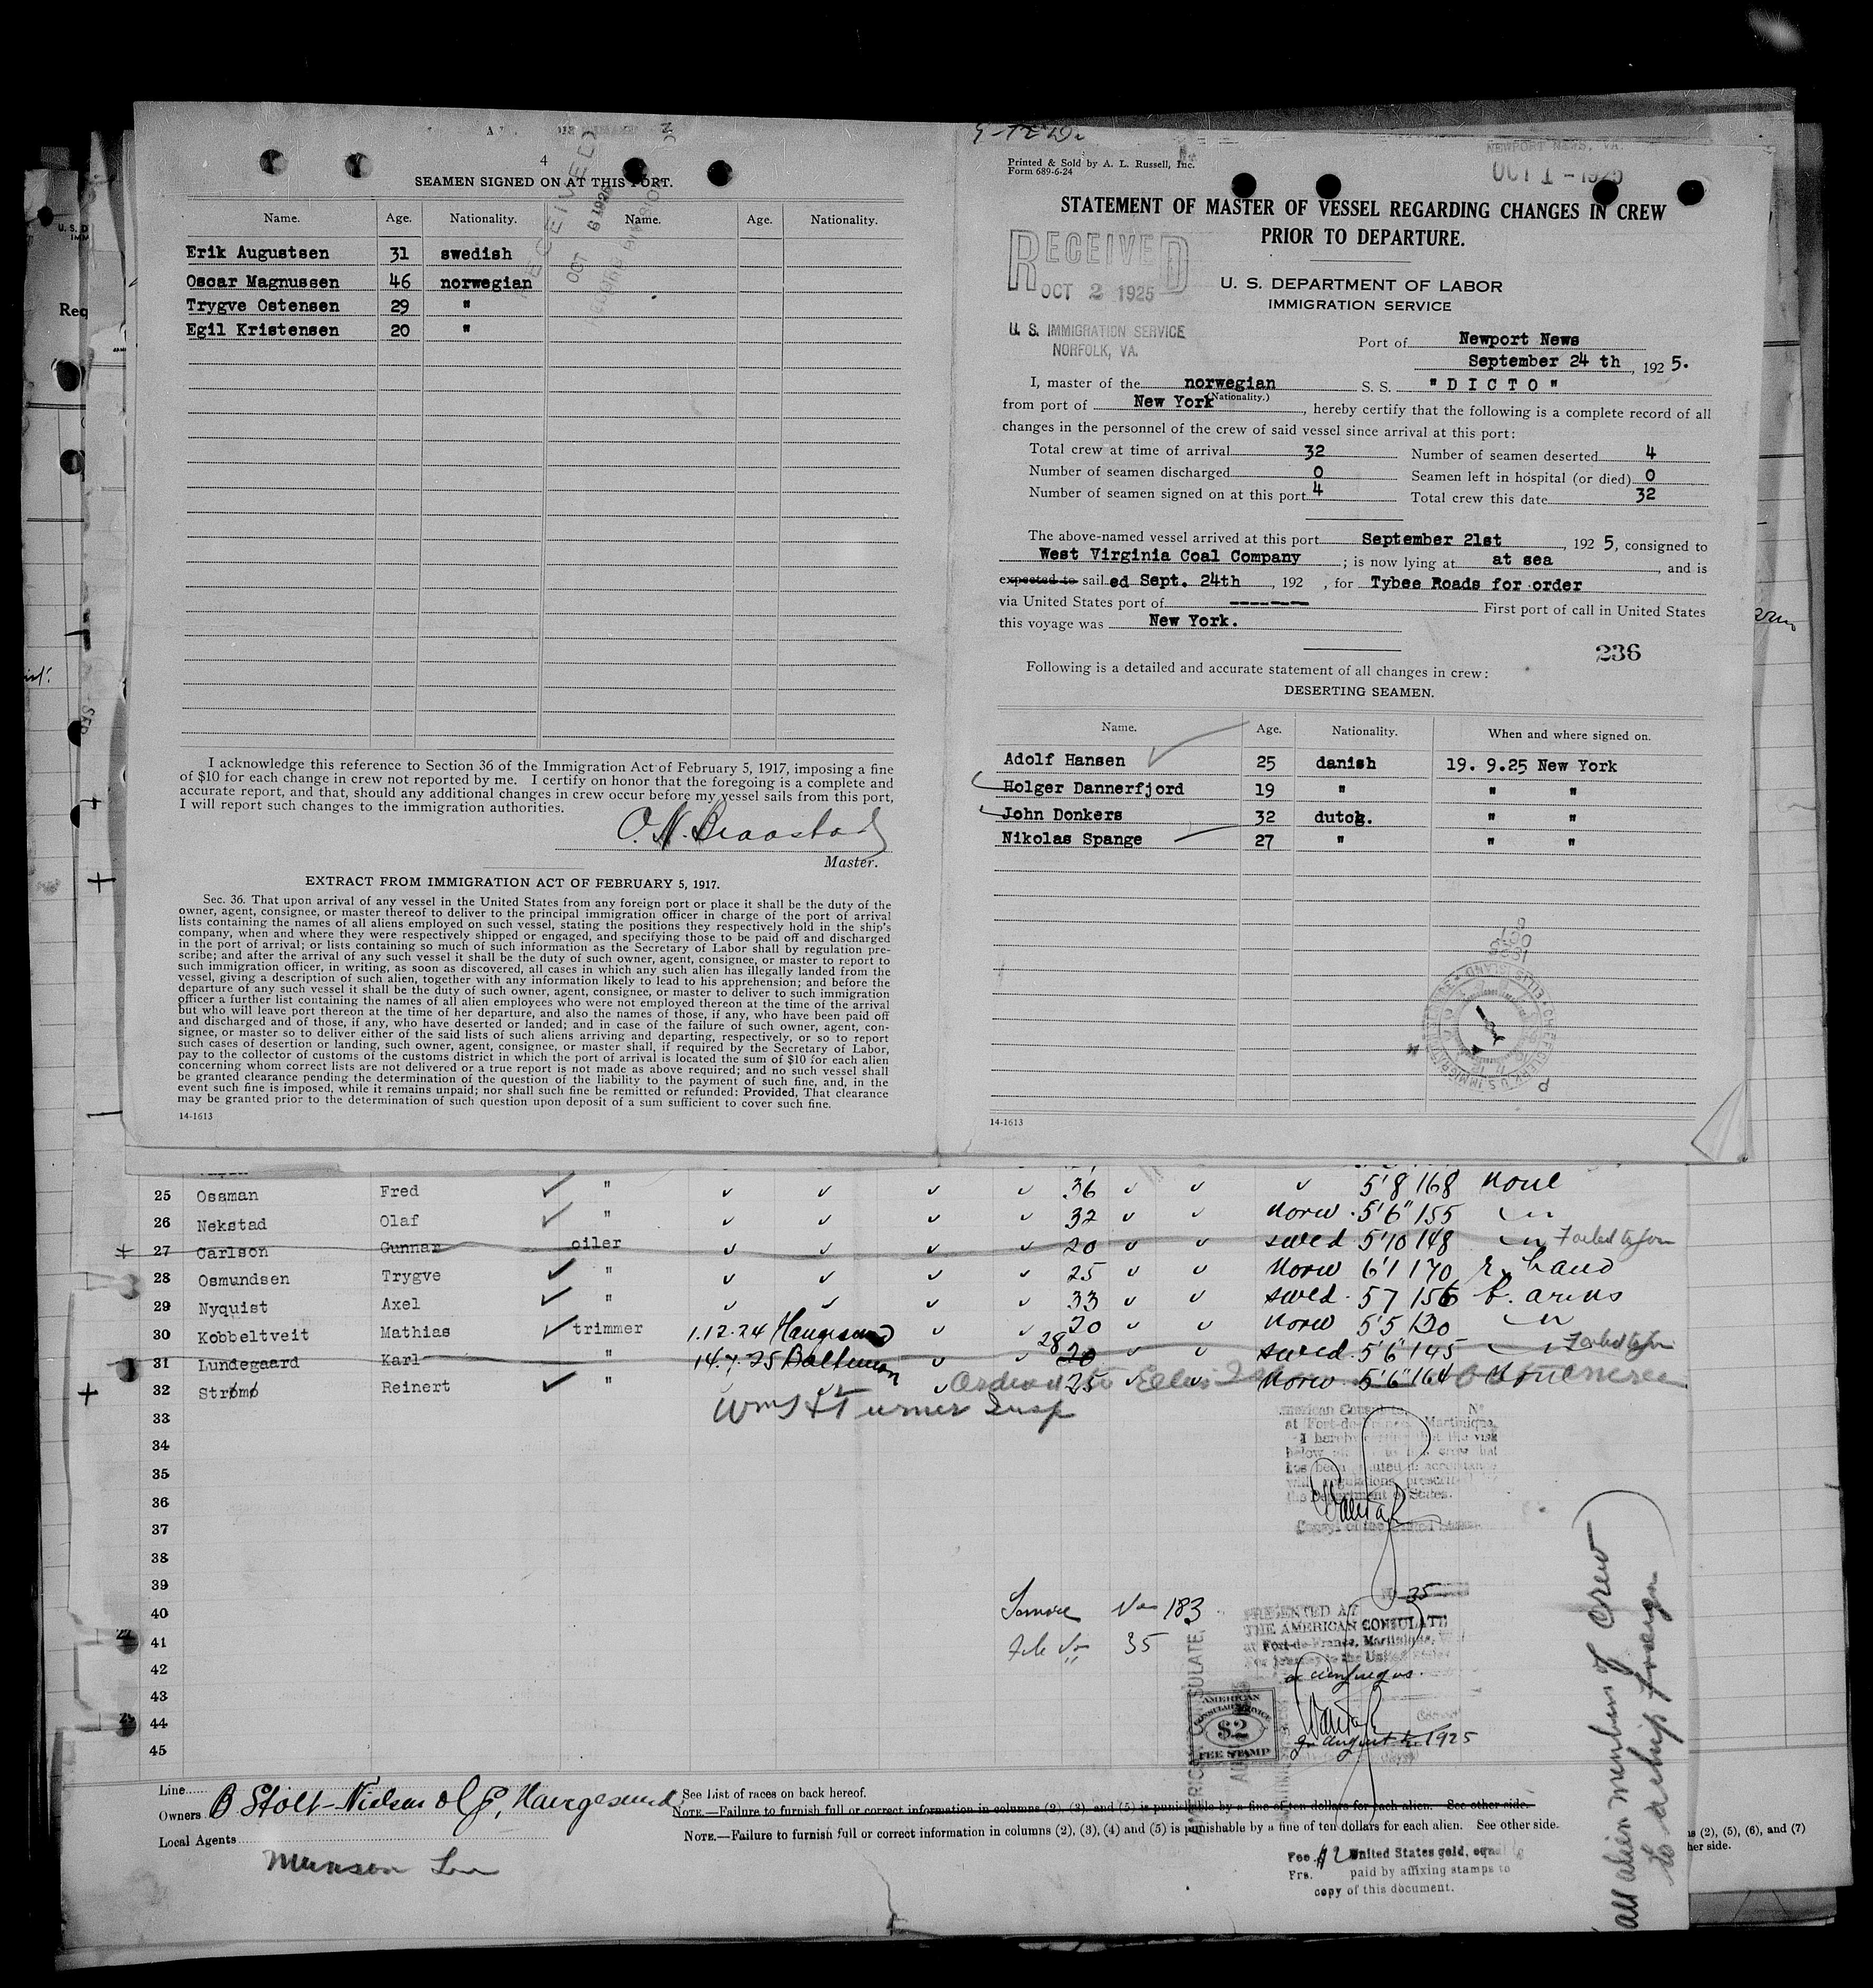 4
SEAMEN SIGNED ON AT THIS PORT.
Name. Age. Nationality. Name. Age. Nationality.
RECEIVED
OCT 6 1925
Erik Augustsen 31 swedish
Oscar Magnussen 46 norwegian
Trygve Ostensen 29 "
Egil Kristensen 20 "
I acknowledge this reference to Section 36 of the Immigration Act of February 5, 1917, imposing a fine
of $10 for each change in crew not reported by me. I certify on honor that the foregoing is a complete and
accurate report, and that, should any additional changes in crew occur before my vessel sails from this port,
I will report such changes to the immigration authorities.
Master.
EXTRACT FROM IMMIGRATION ACT OF FEBRUARY 5, 1917.
Sec. 36. That upon arrival of any vessel in the United States from any foreign port or place it shall be the duty of the
owner, agent, consignee, or master thereof to deliver to the principal immigration officer in charge of the port of arrival
lists containing the names of all aliens employed on such vessel, stating the positions they respectively hold in the ship's
company, when and where they were respectively shipped or engaged, and specifying those to be paid off and discharged
in the port of arrival; or lists containing so much of such information as the Secretary of Labor shall by regulation pre-
scribe; and after the arrival of any such vessel it shall be the duty of such owner, agent, consignee, or master to report to
such immigration officer, in writing, as soon as discovered, all cases in which any such alien has illegally landed from the
vessel, giving a description of such alien, together with any information likely to lead to his apprehension; and before the
departure of any such vessel it shall be the duty of such owner, agent, consignee, or master to deliver to such immigration
officer a further list containing the names of all alien employees who were not employed thereon at the time of the arrival
but who will leave port thereon at the time of her departure, and also the names of those, if any, who have been paid off
and discharged and of those, if any, who have deserted or landed; and in case of the failure of such owner, agent, con-
signee, or master so to deliver either of the said lists of such aliens arriving and departing, respectively, or so to report
such cases of desertion or landing, such owner, agent, consignee, or master shall, if required by the Secretary of Labor,
pay to the collector of customs of the customs district in which the port of arrival is located the sum of $10 for each alien
concerning whom correct lists are not delivered or a true report is not made as above required; and no such vessel shall
be granted clearance pending the determination of the question of the liability to the payment of such fine, and, in the
event such fine is imposed, while it remains unpaid; nor shall such fine be remitted or refunded: Provided, That clearance
may be granted prior to the determination of such question upon deposit of a sum sufficient to cover such fine.
14-1613
Printed & Sold by A. L. Russell, Inc.
Form 689-6-24
NEWPORT NEWS, VA.
OCT 1 - 1925
STATEMENT OF MASTER OF VESSEL REGARDING CHANGES IN CREW
PRIOR TO DEPARTURE.
RECEIVED
OCT 2 1925
U. S. IMMIGRATION SERVICE
NORFOLK, VA.
U. S. DEPARTMENT OF LABOR
IMMIGRATION SERVICE
Port of Newport News
September 24 th, 192 5.
I, master of the norwegian S. S. "DICTO"
(Nationality.)
from port of New York, hereby certify that the following is a complete record of all
changes in the personnel of the crew of said vessel since arrival at this port:
Total crew at time of arrival 32 Number of seamen deserted 4
Number of seamen discharged 0 Seamen left in hospital (or died) 0
Number of seamen signed on at this port 4 Total crew this date 32
The above-named vessel arrived at this port September 21st, 192 5, consigned to
West Virginia Coal Company; is now lying at at sea, and is
expected to sailed Sept. 24th, 192 , for Tybee Roads for order
via United States port of ------- First port of call in United States
this voyage was New York.
236
Following is a detailed and accurate statement of all changes in crew:
DESERTING SEAMEN.
Name. Age. Nationality. When and where signed on.
Adolf Hansen 25 danish 19. 9.25 New York
Holger Dannerfjord 19 " " "
John Donkers 32 dutch. " "
Nikolas Spange 27 " " "
14-1613
25 Osaman Fred " 36 5'8 168 none
26 Nekstad Olaf " 32 Norw 5'6" 155
27 Carlson Gunnar oiler 20 swed 5'10 148 Failed to join
28 Osmundsen Trygve " 25 Norw 6'1 170 r. hand
29 Nyquist Axel " 33 swed. 5 7 156 b. arms
30 Kobbeltveit Mathias trimmer 1.12.24 Haugesund 20 Norw 5'5 120
31 Lundegaard Karl " 14.7.25 Baltimore 28 20 swed. 5'6" 145 Failed to join
32 Strømø Reinert " 25 Norw 5'6" 164
33
34
35
36
37
38
39
40
41
42
43
44
45
American Consulate,
at Fort-de-France, Martinique,
the Department of States.
Service No 183
File No 35
35
PRESENTED AT
THE AMERICAN CONSULATE
at Fort-de-France, Martinique,
Cienfuegos.
AMERICAN
CONSULAR SERVICE
$2
FEE STAMP
August 1925
all alien members of crew
to reship foreign
Line
Owners B Stolt-Nielsen Haugesund
Local Agents
Munson Line
See List of races on back hereof.
NOTE.—Failure to furnish full or correct information in columns (2), (3), and (5) is punishable by a fine of ten dollars for each alien. See other side.
NOTE.—Failure to furnish full or correct information in columns (2), (3), (4) and (5) is punishable by a fine of ten dollars for each alien. See other side.
Fee $2 United States gold, equal to
Frs. paid by affixing stamps to
copy of this document.
(2), (5), (6), and (7)
her side.